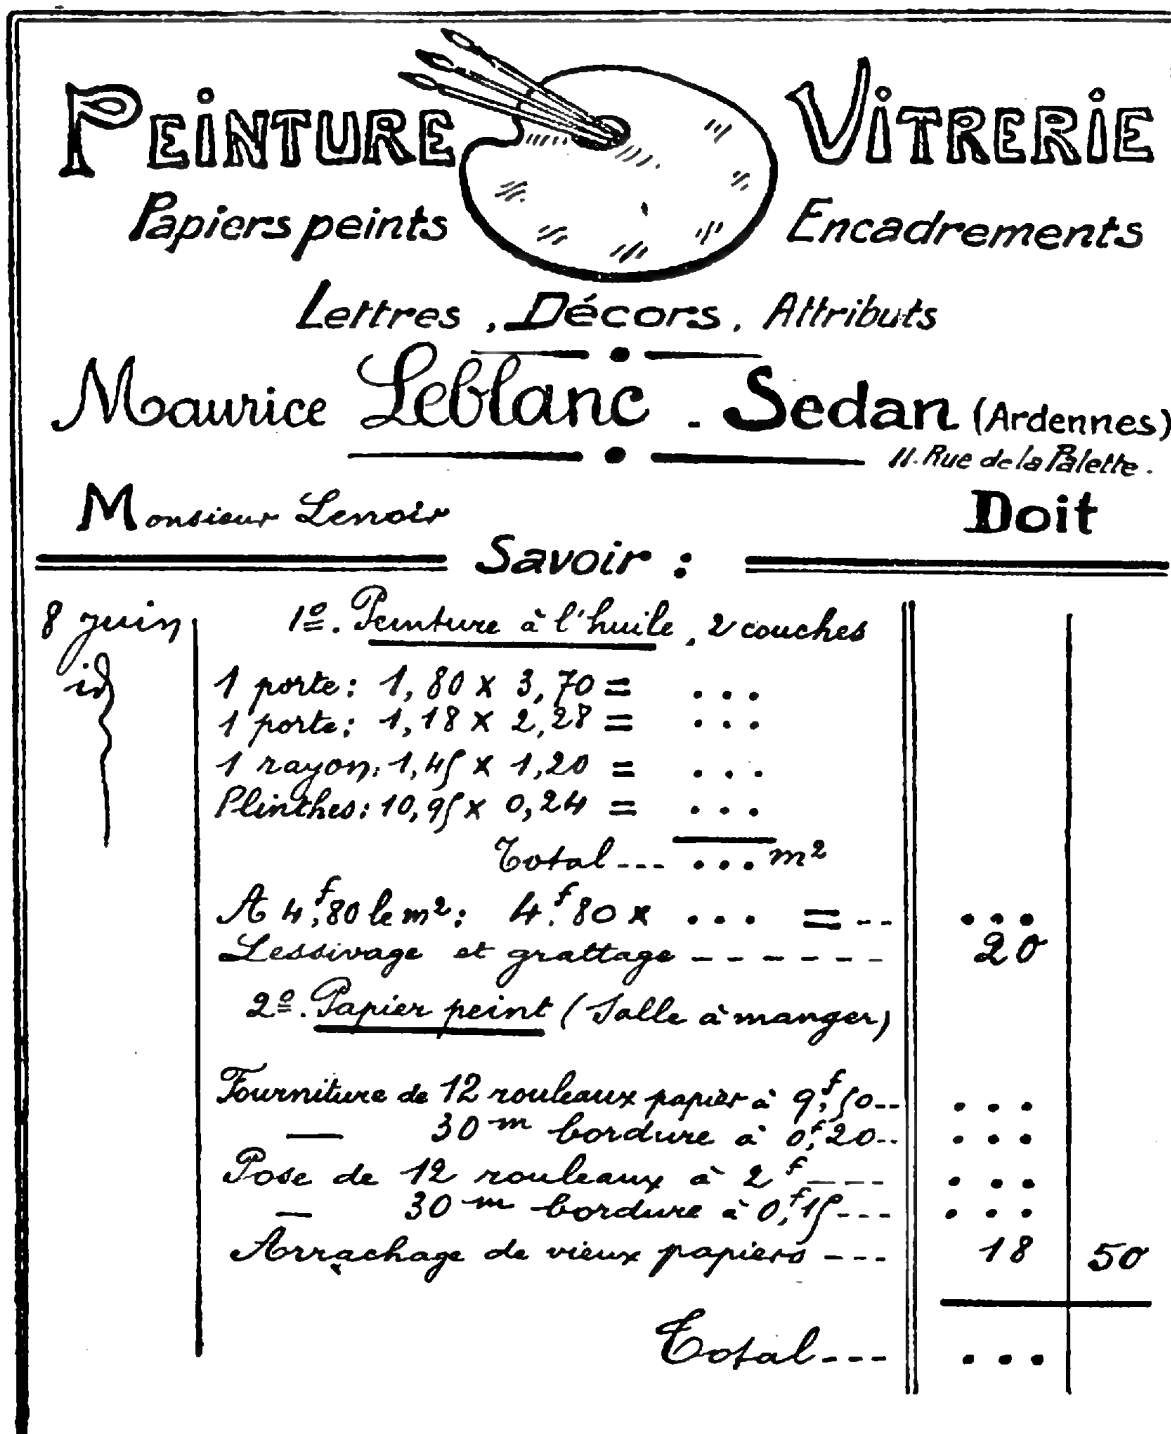 PEINTURE VITRERIE
Papiers peints Encadrements
Lettres, Décors, Attributs
Maurice Leblanc - Sedan (Ardennes)
11. Rue de la Palette.
Monsieur Lenoir Doit
Savoir :
8 juin 1º. Peinture à l'huile, 2 couches
id 1 porte : 1,80 x 3,70 = ...
1 porte : 1,18 x 2,28 = ...
1 rayon : 1,45 x 1,20 = ...
Plinthes : 10,95 x 0,24 = ...
Total --- ... m²
A 4f,80 le m² : 4f,80 x ... = -- ...
Lessivage et grattage ------ 20
2º. Papier peint (Salle à manger)
Fourniture de 12 rouleaux papier à 9f,50 -- ...
— 30 m bordure à 0f,20 -- ...
Pose de 12 rouleaux à 2f --- ...
— 30 m bordure à 0f,15 --- ...
Arrachage de vieux papiers --- 18 50
Total --- ...